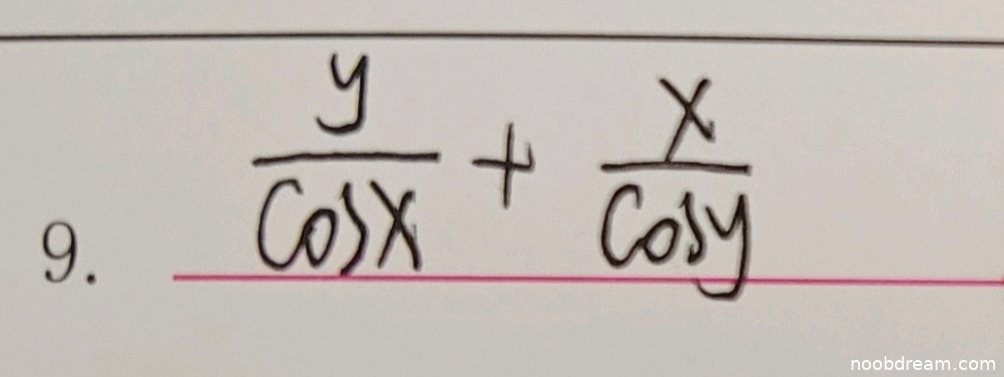 9. \frac{y}{\cos x} + \frac{x}{\cos y}
noobdream.com